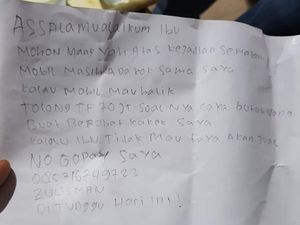 ASSALAMUALAIKUM IBU
MOHON MAAF YAH ATAS KEJADIAN SEMALAM
MOBIL MASIH ADA SAMA SAYA
KALAU MOBIL MAU BALIK
TOLONG TF 70 JT SOAL NYA SAYA BUTUH UANG
BUAT BEROBAT KAKEK SAYA
KALAU IBU TIDAK MAU SAYA AKAN JUAL
NO GOPAY SAYA
085716749723
ZULISMAN
DITUNGGU HARI INI!